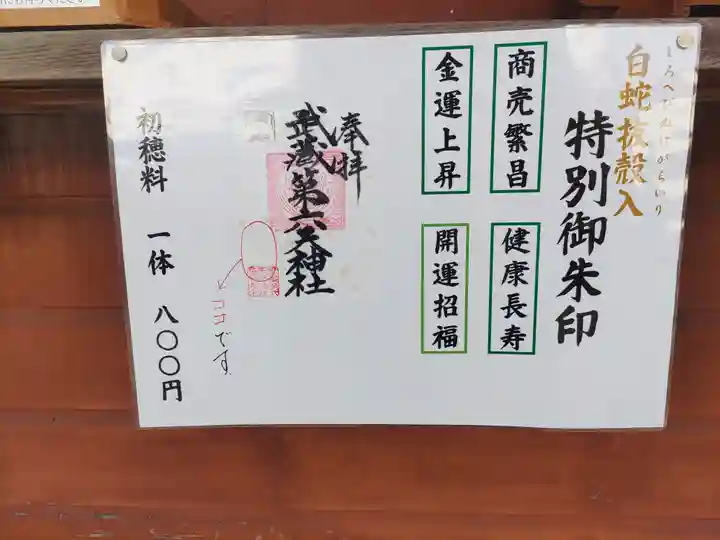 白蛇抜殻入
しろへびぬけがらいり
特別御朱印
商売繁昌
健康長寿
金運上昇
開運招福
奉拝
武蔵第六天神社
ココです。
初穂料 一体 八〇〇円